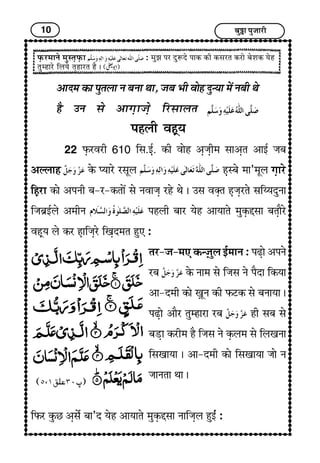 10
बुड्ढा पुजारी
फ़रमाने मुस्तफ़ा صَلَّى اللهُ تَعَالٰى عَلَيْهِ وَاٰلِهٖ وَسَلَّم : मुझ पर दुरूदे पाक की कसरत करो बेशक येह
तुम्हारे लिये तहारत है ।
आदम का पुतला न बना था, जब भी वोह दुन्या में नबी थे
है उन से आग़ाज़े रिसालत صَلَّى اللهُ عَلَيْهِ وَسَلَّم
पहली वह्‌य
22 फ़रवरी 610 सि.ई. की वोह अज़ीम साअ़त आई जब
अल्लाह عَزَّوَجَلَّ के प्यारे रसूल صَلَّى اللهُ تَعَالٰى عَلَيْهِ وَاٰلِهٖ وَسَلَّم हस्बे मा'मूल ग़ारे
हिरा को अपनी ब-र-कतों से नवाज़ रहे थे । उस वक़्त हज़रते सय्यिदुना
जिब्रईले अमीन عَلَيْهِ الصَّلٰوةُ وَالسَّلَام पहली बार येह आयाते मुक़द्दसा बतौरे
वह्‌य ले कर हाज़िरे ख़िदमत हुए :
اِقْرَاْ بِاسْمِ رَبِّكَ الَّذِيْ
خَلَقَ ۚ خَلَقَ الْاِنْسَانَ مِنْ
عَلَقٍ ۚ اِقْرَاْ وَرَبُّكَ
الْاَكْرَمُ ۙ الَّذِيْ عَلَّمَ
بِالْقَلَمِ ۙ عَلَّمَ الْاِنْسَانَ
مَا لَمْ يَعْلَمْ ؕ
(پ۳۰، علق۱۔۵)
तर-ज-मए कन्ज़ुल ईमान : पढ़ो अपने
रब عَزَّوَجَلَّ के नाम से जिस ने पैदा किया
आ-दमी को ख़ून की फटक से बनाया ।
पढ़ो और तुम्हारा रब عَزَّوَجَلَّ ही सब से
बड़ा करीम है जिस ने क़लम से लिखना
सिखाया । आ-दमी को सिखाया जो न
जानता था ।
फिर कुछ अ़र्से बा'द येह आयाते मुक़द्दसा नाज़िल हुई :